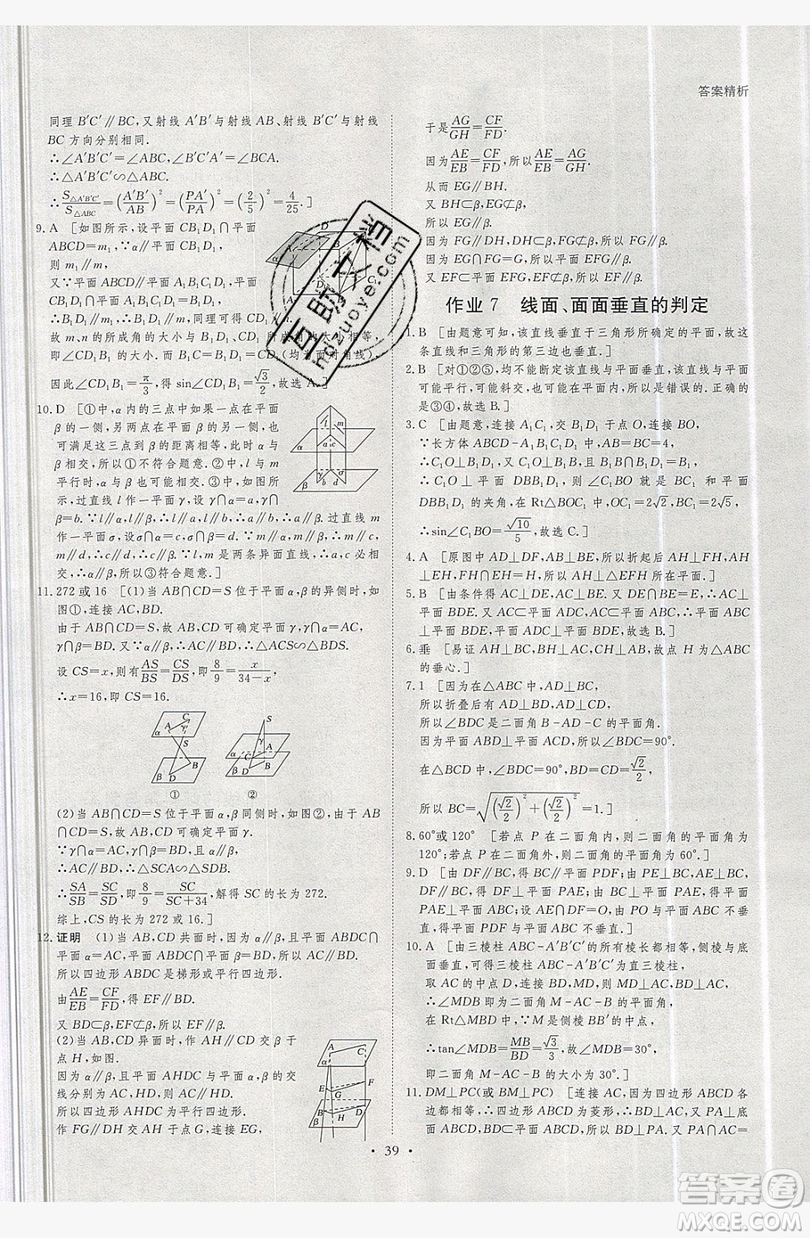 答案精析
同理 B′C′∥BC,又射线 A′B′与射线 AB、射线 B′C′与射线
BC 方向分别相同.
∴∠A′B′C′=∠ABC,∠A′C′B′=∠BCA.
∴△A′B′C′∽△ABC.
∴S△A′B′C′/S△ABC=(A′B′/AB)²=(PA′/PA)²=(2/5)²=4/25.]
9.A [如图所示,设平面 CB₁D₁∩平面
ABCD=m₁,∵α∥平面 CB₁D₁,
则 m₁∥m,
又∵平面 ABCD∥平面 A₁B₁C₁D₁,
平面 CB₁D₁∩平面 A₁B₁C₁D₁=B₁D₁,
∴B₁D₁∥m₁,∴B₁D₁∥m,同理可得 CD₁∥n.
故 m、n 的所成角的大小与 B₁D₁、CD₁
即∠CD₁B₁ 的大小.而 B₁C=B₁D₁=CD₁
因此∠CD₁B₁=π/3,得 sin∠CD₁B₁=√3/2,故选 A.]
10.D [①中,α 内的三点中如果一点在平面
的一侧,另两点在平面 β 的另一侧,也
可满足这三点到 β 的距离相等,故①不
符合题意.
∵②中 l 与 m 有可能平行,∴②不符合题意.
如图,过直线 l 作一平面 γ,设 γ∩α=a,γ∩
β=b.∵l∥α,l∥β,∴l∥a,l∥b,∴a∥b.过直线 m
作一平面 σ,设 σ∩α=c,σ∩β=d.∵m∥α,m∥β,∴m∥c,
m∥d,∴c∥d,∵l,m 是两条异面直线,∴a,c 必相交,
∴α∥β,所以③符合题意.]
11.272 或 16 [(1)当 AB∩CD=S 位于平面 α,β 的异侧时,如
图①,连接 AC,BD.
由于 AB∩CD=S,故 AB,CD 可确定平面 γ,γ∩α=AC,
γ∩β=BD.∵α∥β,∴AC∥BD,∴△ACS∽△BDS.
设 CS=x,则由 AS/BS=CS/DS,得 8/9=x/(34−x),
∴x=16,即 CS=16.
①
②
(2)当 AB∩CD=S 位于平面 α,β 同侧时,如图②,连接
AC,BD,由于 AB∩CD=S,故 AB,CD 可确定平面 γ.
∵γ∩α=AC,γ∩β=BD.
∵α∥β,∴AC∥BD,∴△SAC∽△SBD,
∴SA/SB=SC/SD,即 8/9=SC/(SC+34),解得 SC 的长为 272.
综上,CS 的长为 272 或 16.]
12.证明 (1)当 AB,CD 共面时,因为 α∥β,且平面 ABDC∩
α=AC,平面 ABDC∩β=BD,所以 AC∥BD.
所以四边形 ABDC 是梯形或平行四边形.
由 AE/EB=CF/FD,得 EF∥BD.
又 BD⊂β,EF⊄β,所以 EF∥β.
(2)当 AB,CD 异面时,作 AH∥CD 交 β 于
点 H,如图.
因为 α∥β,且平面 AHDC 与平面 α,
β 的交线分别为 AC,HD,所以 AC∥HD.
所以四边形 AHDC 为平行四边形.
作 FG∥DH 交 AH 于点 G,连接 EG,
于是 AG/GH=CF/FD.
因为 AE/EB=CF/FD,所以 AE/EB=AG/GH.
从而 EG∥BH.
又 BH⊂β,EG⊄β,所以 EG∥β.
因为 FG∥DH,DH⊂β,FG⊄β,所以 FG∥β.
因为 EG∩FG=G,所以平面 EFG∥β.
又 EF⊂平面 EFG,所以 EF∥β.
作业 7 线面、面面垂直的判定
1.B [由题意可知,该直线垂直于三角形所确定的平面,故这
条直线和三角形的第三边也垂直.]
2.B [对①②⑤,均不能断定该直线与平面垂直,该直线与平面
可能平行,可能斜交,也可能在平面内,所以是错误的.正确的
是③④,故选 B.]
3.C [由题意,连接 A₁C₁,交 B₁D₁ 于点 O,连接 BO,
∵长方体 ABCD-A₁B₁C₁D₁ 中,AB=BC=4,
∴C₁O⊥B₁D₁,又 C₁O⊥BB₁,B₁D₁∩BB₁=B₁,
∴C₁O⊥平面 DBB₁D₁,∴∠C₁BO 是 BC₁ 和平面
DBB₁D₁ 的夹角,在 Rt△BOC₁ 中,OC₁=2√2,BC₁=2√5,
∴sin∠C₁BO=√10/5,故选 C.]
4.A [原图中 AD⊥DF,AB⊥BE,所以折起后 AH⊥HF,
AH⊥HE,FH∩EH=H,所以 AH⊥平面 EFH.]
5.B [由条件得 AC⊥DE,AC⊥BE.又 DE∩BE=E,∴AC⊥
平面 BDE.又 AC⊂平面 ABC,AC⊂平面 ACD,∴平面 ABC⊥
平面 BDE,平面 ACD⊥平面 BDE.故选 B.]
6.垂 [易证 AH⊥BC,BH⊥AC,CH⊥AB,故点 H 为△ABC
的垂心.]
7.1 [因为在△ABC 中,AD⊥BC,
所以折叠后有 AD⊥BD,AD⊥CD,
所以∠BDC 是二面角 B-AD-C 的平面角.
因为平面 ABD⊥平面 ACD,所以∠BDC=90°.
在△BCD 中,∠BDC=90°,BD=CD=√2/2,
所以 BC=√((√2/2)²+(√2/2)²)=1.]
8.60°或120° [若点 P 在二面角内,则二面角的平面角为
120°;若点 P 在二面角外,则二面角的平面角为 60°.]
9.D [D 中,由 DE∥BC,BC∥平面 PDF,故正确;
得 DF⊥平面 PAE,故正确;由 BC⊥平面 PAE,得平面 ABC⊥
平面 PAE,故正确;设 AE∩DF=O,由 PO 与平面 ABC 不垂
直,可得平面 PDF 与平面 ABC 不垂直.]
10.A [由三棱柱 ABC-A′B′C′的所有棱长都相等,侧棱与底
面垂直,连接 A′B,AB′交于点 D,连接 MD,可得 MD⊥AB′,
∴∠MDB 为二面角 M-AC-B 的平面角,
又∵M 是侧棱 BB′的中点,
∴tan∠MDB=MB/BD=√3/3,故∠MDB=30°,
即二面角 M-AC-B 的大小为 30°,故选 A.]
11.DM⊥PC(或 BM⊥PC) [连接 AC,因为四边形 ABCD 各
边相等,所以四边形 ABCD 为菱形,∴BD⊥AC,又 PA⊥底面
ABCD,BD⊂平面 ABCD,所以 PA⊥BD,又 PA∩AC=
• 39 •
互助文档
ngzuoye.com
答案圈
MXQE.COM